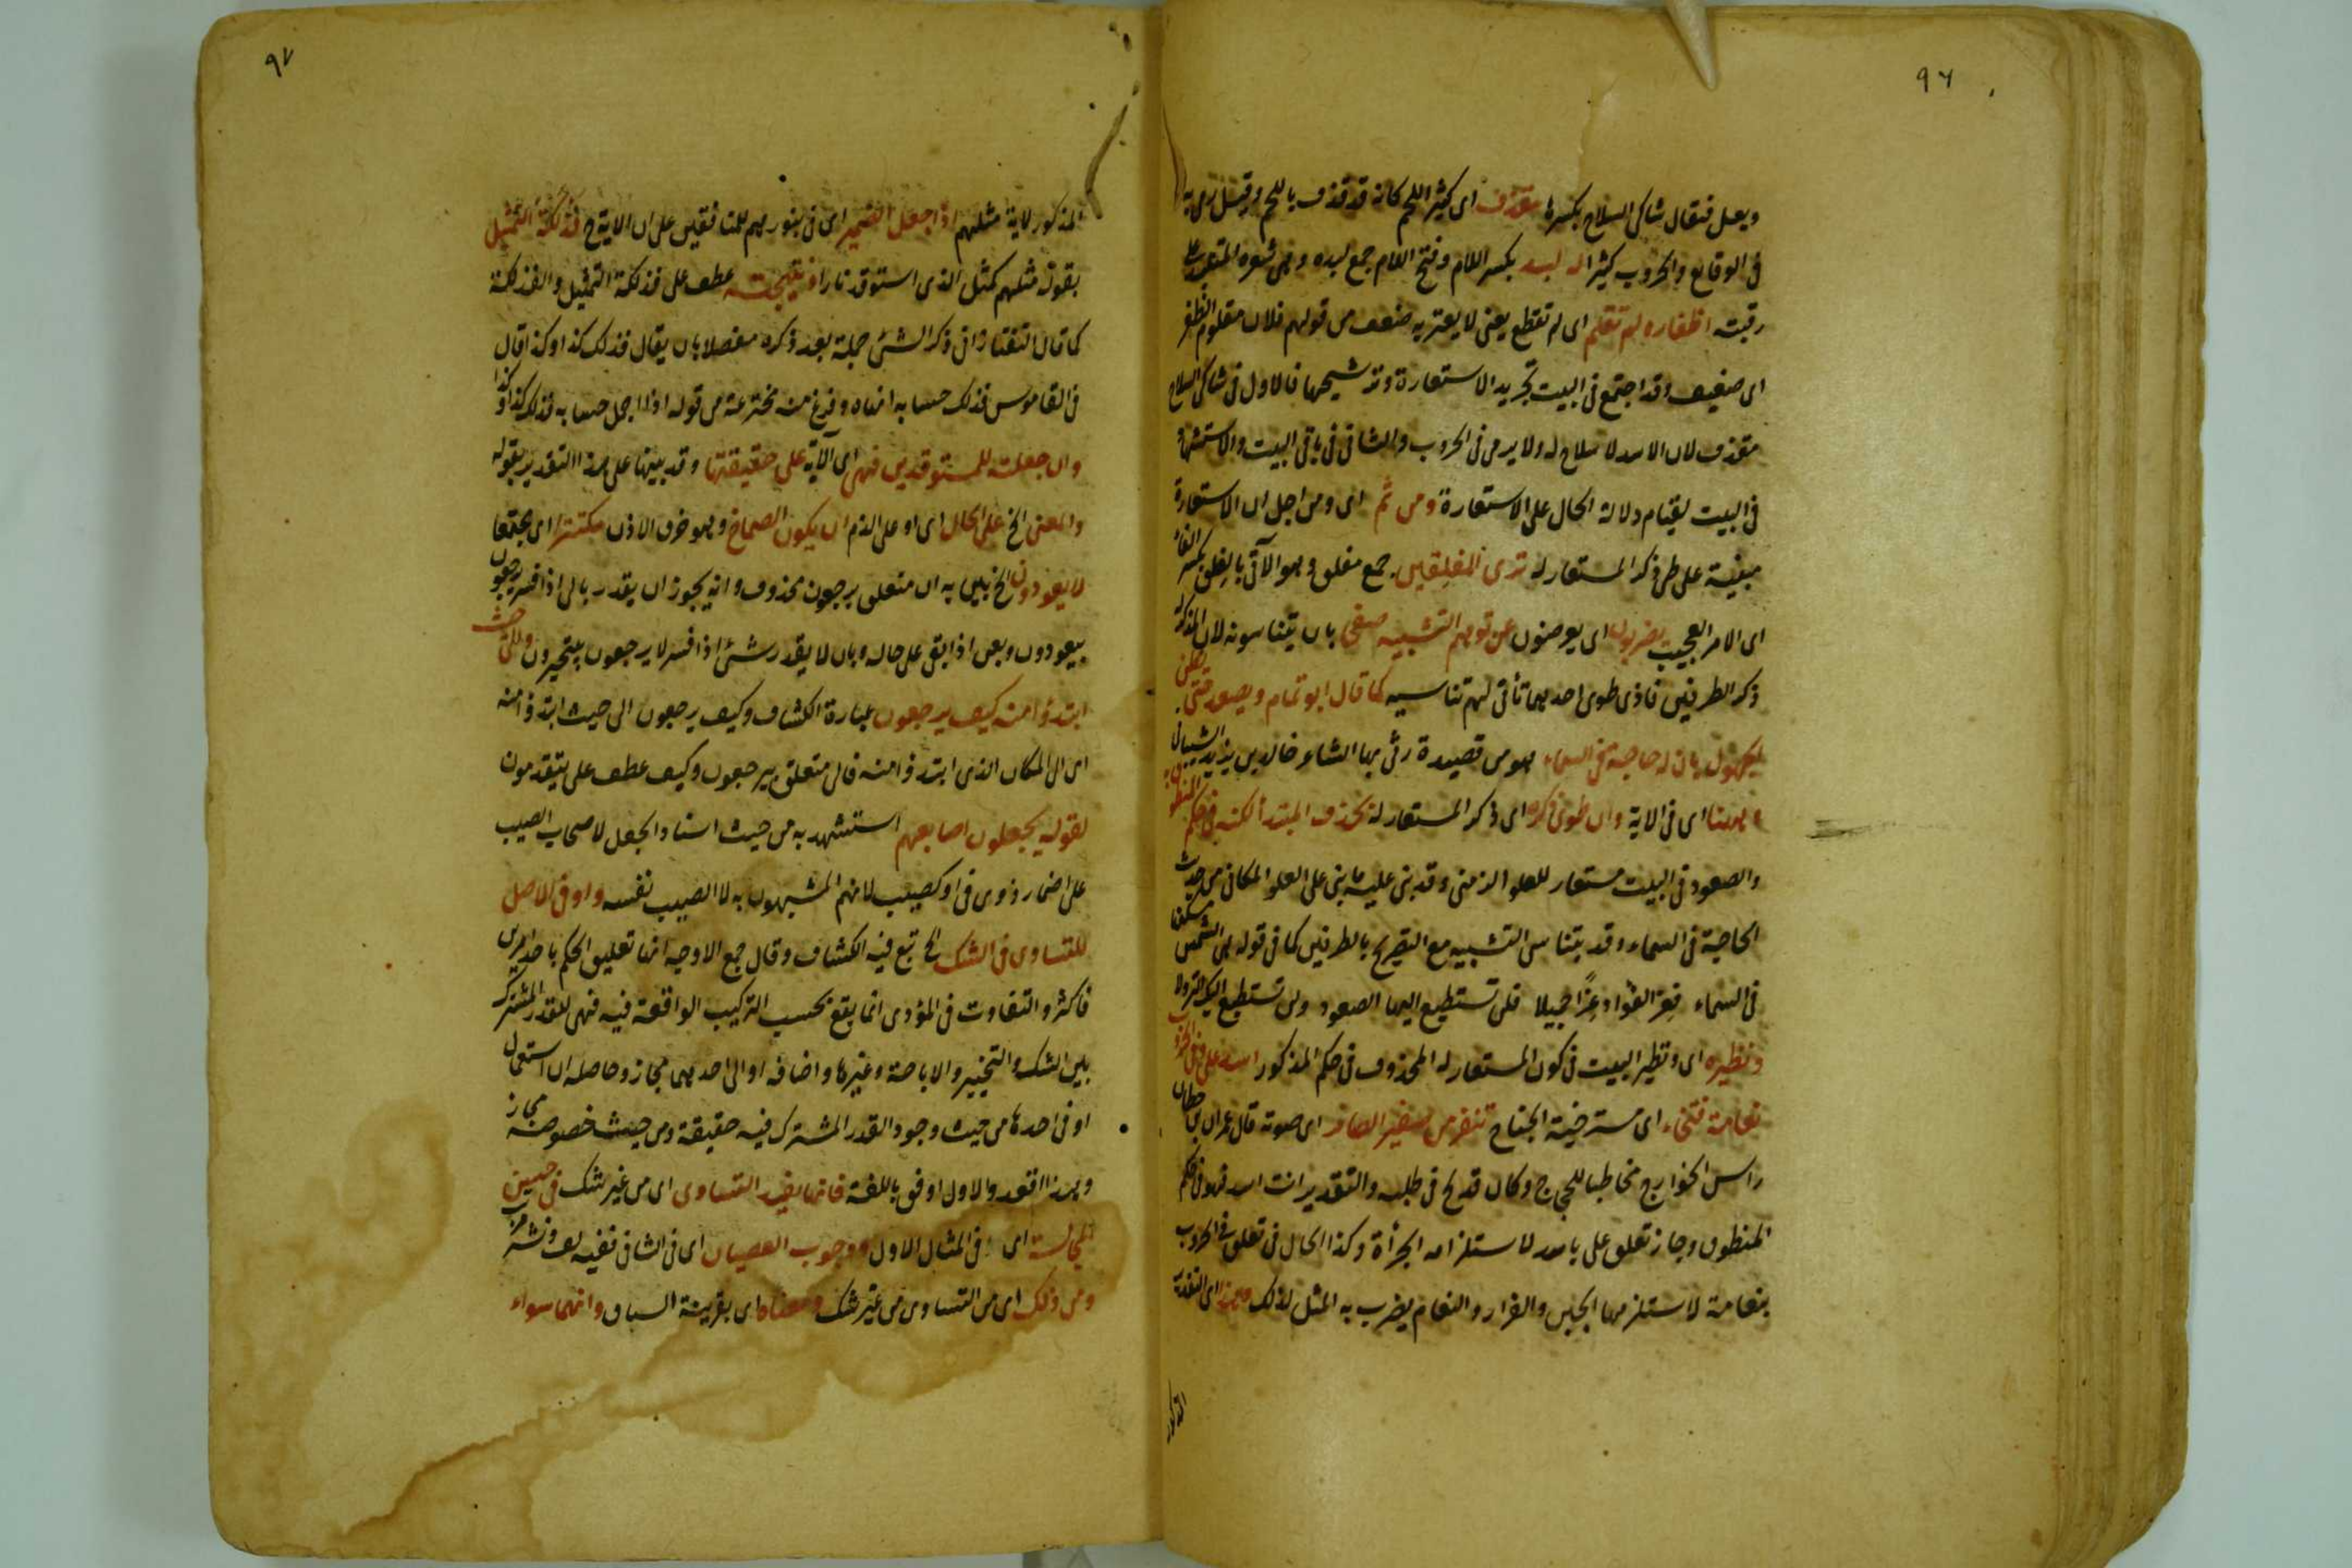 ٩٦
ويعل فيقال شاكى السلاح بكسرها مقذف اى كثير اللحم كانه قد قذف باللحم وقيل رمى به
فى الوقايع والحروب كثيرا له لبد بكسر اللام وفتح اللام جمع لبده وهى شعره المتلبد على
رقبته اظفاره لم تقلم اى لم تقطع يعنى لا يعتريه ضعف من قولهم فلان مقلوم الظفر
اى ضعيف وقد اجتمع فى البيت تجريد الاستعارة وترشيحها فالاول فى شاكى السلاح
مقذف لان الاسد لا سلاح له ولا يرمى فى الحروب والثانى فى باقى البيت والاستشهاد
فى البيت لقيام دلالة الحال على الاستعارة ومن ثَم اى ومن اجل ان الاستعارة
مبنية على طى ذكر المستعار له ترى المفلِقين جمع مفلق وهو الآتى بالفِلق بكسر الفاء
اى الامر العجيب يضربون اى يعرضون عن توهم التشبيه صفحا بان يتناسونه لان المذكر
ذكر الطرفين فاذى طوى احدهما تأتى لهم تناسيه كما قال ابو تمام ويصعد حتى يظن
الجهول بان له حاجة فى السماء هو من قصيدة رثى بها الشاعر خالد بن يزيد الشيبانى
وههنا اى فى الاية وان طوى ذكره اى ذكر المستعار له بحذف المبتدأ لكنه فى حكم المنطوق به
والصعود فى البيت مستعار للعلو الزمنى وقد بنى عليه ما بنى على العلو المكانى من حديث
الحاجة فى السماء وقد يتناسى التشبيه مع التصريح بالطرفين كما فى قوله هى الشمس مسكنها
فى السماء فعز الفؤاد عزًا جميلا فلن تستطيع اليها الصعود ولن تستطيع اليك النزولا
ونظيره اى ونظير البيت فى كون المستعار له المحذوف فى حكم المذكور اسد على وفى الحروب
نعامة فتخاء اى مسترخية الجناح تنفر من صفير الصافر اى صوته قاله عمران بن حطان
راس الخوارج مخاطبا للحجاج وكان قد لح فى طلبه والتقدير انت اسد فهو فى حكم
المنطوق وجاز تعلق على باسد لاستلزامه الجرأة وكذا الحال فى تعلق فى الحروب
بنعامة لاستلزامها الجبن والفرار والنعام يضرب به المثل لذلك وهذا اى التقدير
المذكور
٩٧
المذكور لاية مثلهم اذا جعل الضمير اى فى بنورهم للمنافقين على ان الاية ح فذلكة التمثيل
بقوله مثلهم كمثل الذى استوقد نارا ونتيجته عطف على فذلكة التمثيل والفذلكة
كما قال التفتازانى ذكر الشئ جملة بعد ذكره مفصلا بان يقال فذلك كذا وكذا قال
فى القاموس فذلك حسابه انهاه وفرغ منه مخترعة من قوله اذا اجمل حسابه فذلك كذا وكذا
وان جعلته للمستوقدين فهى اى الآية على حقيقتها وقد بينها على هذا التقدير بقوله
والمعنى الخ على الحال اى او على الذم ان يكون الصماخ وهو خرق الاذن مكتنزا اى مجتمعا
لا يعودون الخ بين به ان متعلق يرجعون محذوف وانه يجوز ان يقدر بالى اذا فسر يرجعون
بيعودون وبعن اذا بقى على حاله وبان لا يقدر شئ اذا فسر لا يرجعون بيتحيرون والى حيث
ابتدؤا منه كيف يرجعون عبارة الكشاف وكيف يرجعون الى حيث ابتدؤا منه
اى الى المكان الذى ابتدؤا منه فالى متعلق بيرجعون وكيف عطف على يتقدمون
لقوله يجعلون اصابعهم استشهد به من حيث اسناد الجعل لاصحاب الصيب
على اضمار ذوى فى او كصيب لانهم المشبهون به لا الصيب نفسه واو فى الاصل
للتساوى فى الشك الخ تبع فيه الكشاف وقال جمع الاوجه انها تعليق الحكم باحد امرين
فاكثر والتفاوت فى المؤدى انما يقع بحسب التركيب الواقعة فيه فهى للقدر المشترك
بين الشك والتخيير والاباحة وغيرها واضافه او الى احدهما مجاز وحاصله ان استعمال
او فى احدها من حيث وجود القدر المشترك فيه حقيقة ومن حيث خصوصه مجاز
وهذا اقعد والاول اوفق باللغة فانها يفيد التساوى اى من غير شك فى حسن
المجالسة اى فى المثال الاول ووجوب العصيان اى فى الثانى ففيه لف ونشر مرتب
ومن ذلك اى من التساوى من غير شك ومعناه اى بقرينة السياق وانهما سواء